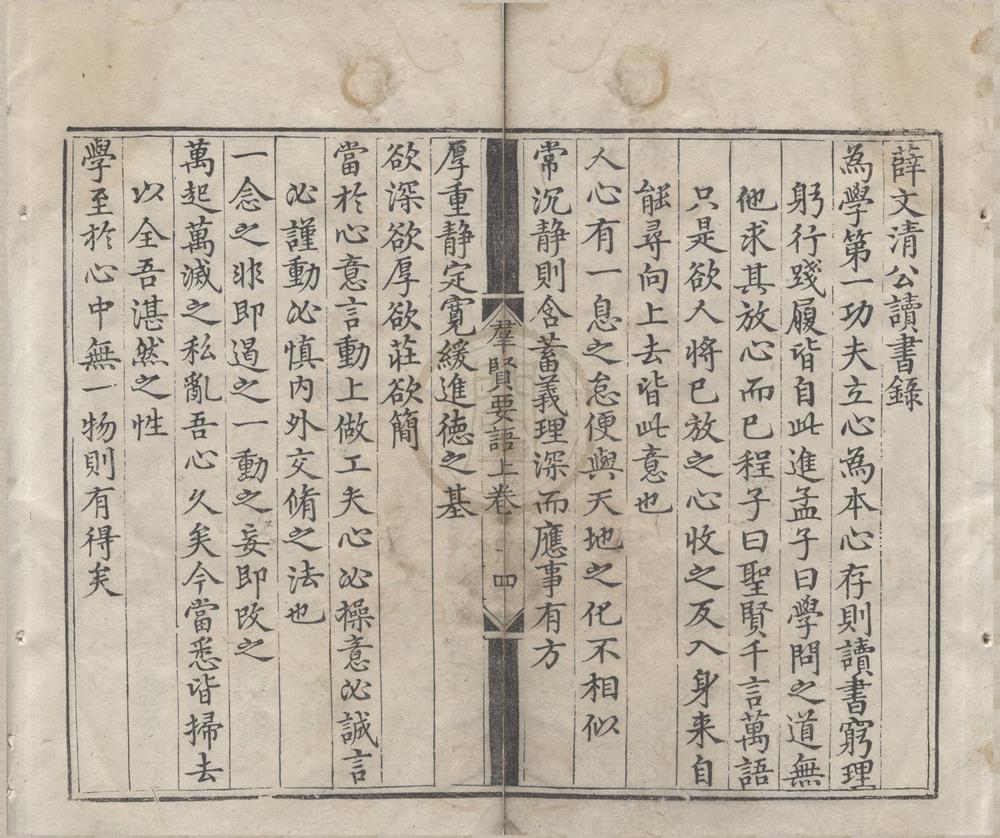 薛文清公讀書錄
為學第一功夫立心為本心存則讀書窮理
躬行踐履皆自此進孟子曰學問之道無
他求其放心而已程子曰聖賢千言萬語
只是欲人將已放之心收之反入身来自
能尋向上去皆此意也
人心有一息之怠便與天地之化不相似
常沉静則含蓄義理深而應事有方
羣賢要語上卷 四
厚重静定寛緩進德之基
欲深欲厚欲莊欲簡
當於心意言動上做工夫心必操意必誠言
必謹動必慎內外交脩之法也
一念之非即遏之一動之妄即改之
萬起萬滅之私亂吾心久矣今當悉皆掃去
以全吾湛然之性
學至於心中無一物則有得矣